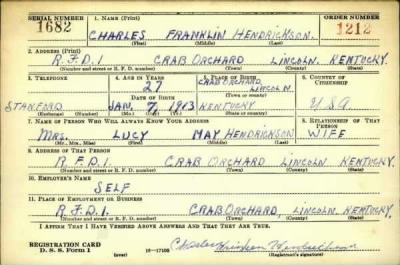 SERIAL NUMBER 1. NAME (Print) ORDER NUMBER
1682 CHARLES FRANKLIN HENDRICKSON. 1212
(First) (Middle) (Last)
2. ADDRESS (Print)
R.F.D.1 CRAB ORCHARD LINCOLN. KENTUCKY.
(Number and street or R. F. D. number) (Town) (County) (State)
3. TELEPHONE 4. AGE IN YEARS 5. PLACE OF BIRTH 6. COUNTRY OF CITIZENSHIP
27 CRAB ORCHARD, LINCOLN.
DATE OF BIRTH
STANFORD JAN. 7, 1913 KENTUCKY U.S.A.
7. NAME OF PERSON WHO WILL ALWAYS KNOW YOUR ADDRESS 8. RELATIONSHIP OF THAT PERSON
MRS. LUCY MAY HENDRICKSON WIFE
(Mr., Mrs., Miss) (First) (Middle) (Last)
9. ADDRESS OF THAT PERSON
R.F.D.1. CRAB ORCHARD LINCOLN KENTUCKY.
(Number and street or R. F. D. number) (Town) (County) (State)
10. EMPLOYER'S NAME
SELF
11. PLACE OF EMPLOYMENT OR BUSINESS
R.F.D.1. CRAB ORCHARD, LINCOLN. KENTUCKY.
(Number and street or R. F. D. number) (Town) (County) (State)
I AFFIRM THAT I HAVE VERIFIED ABOVE ANSWERS AND THAT THEY ARE TRUE.
REGISTRATION CARD
D. S. S. Form 1 16—17105 Charles Franklin Hendrickson
(Registrant's signature)